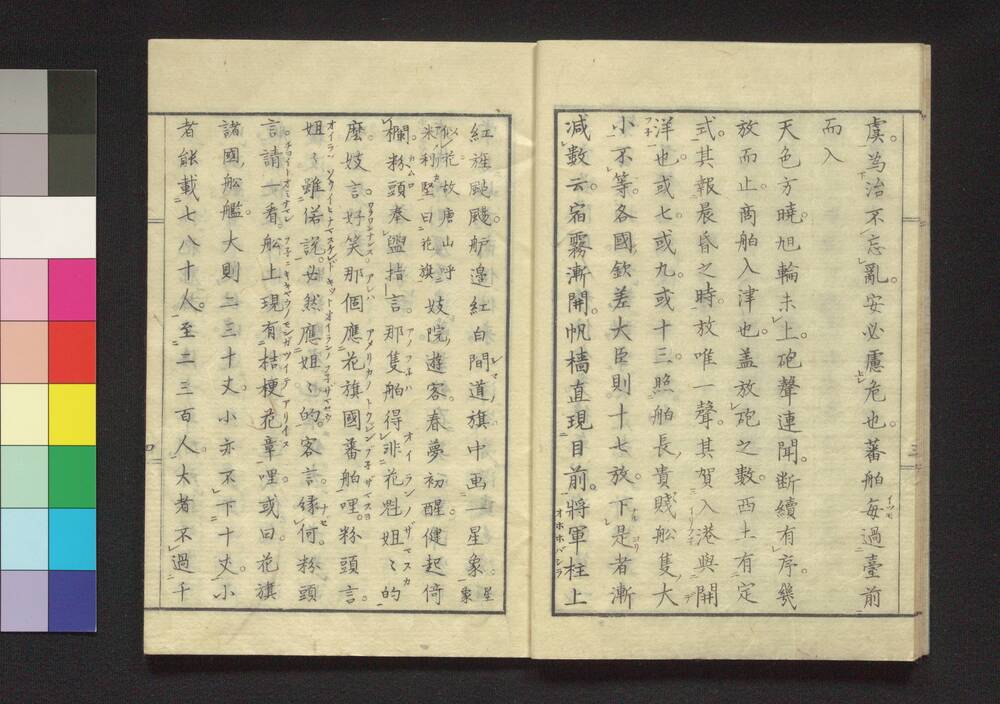 虞。為治不忘亂。安必慮危也。蕃舶每過臺前
而入
天色方曉。旭輪未上。砲聲連聞。斷續有序。幾
放而止。商舶入津也。盖放砲之數。西土有定
式。其報晨昏之時。放唯一聲。其賀入港與開
洋也。或七。或九。或十三。照舶長貴賤舩隻大
小不等。各國欽差大臣則十七放。下是者漸
減數云。宿霧漸開。帆檣直現目前。將軍柱上
紅旌颭颭。舮邊紅白間道。旗中畫一星象星象
似花。故唐山呼米利堅曰花旗。妓院遊客。春夢初醒。健起倚
欄。粉頭奉盥。指言。那隻舶得非花魁姐〻的
麼。妓言。好笑。那個應花旗國蕃舶哩。粉頭言。
姐〻雖偌說。必然應姐〻的。客言。緣何。粉頭
言。請一看。舩上現有桔梗花章哩。或曰。花旗
諸國舩艦。大則二三十丈。小亦不下十丈。小
者能載七八十人。至二三百人。大者不過千